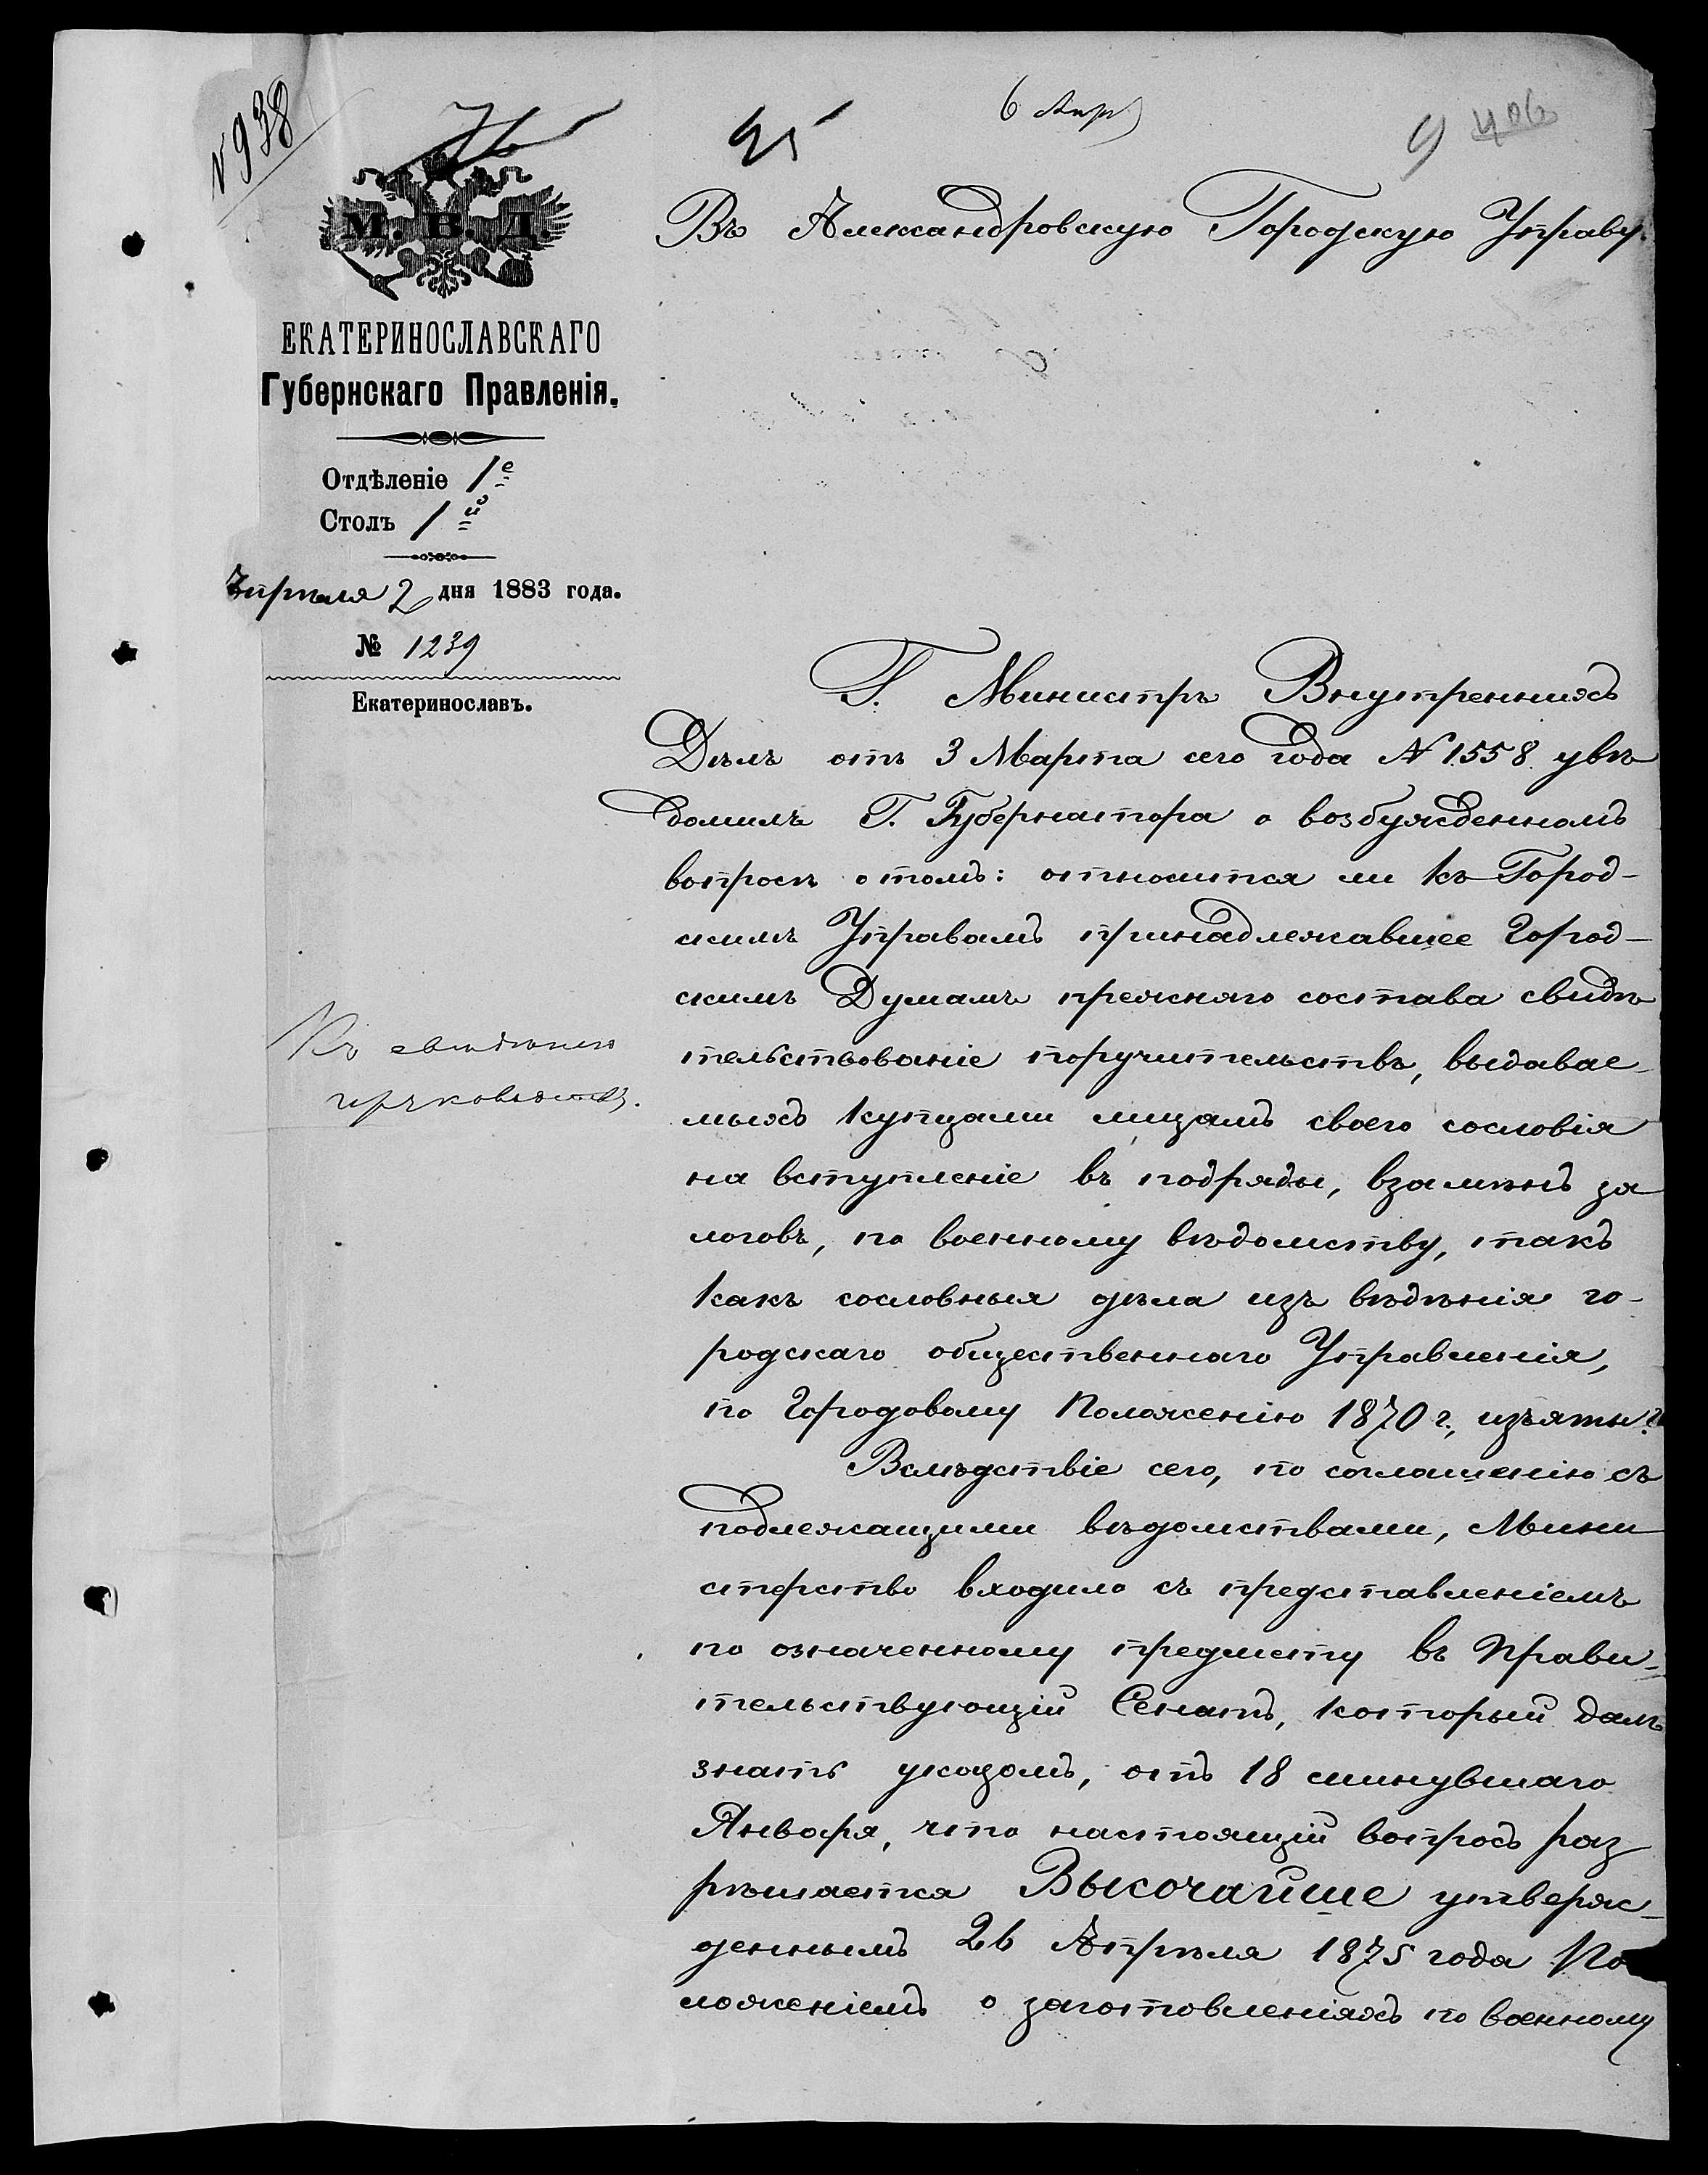 № 938
6 Апр
9 406
М. В. Д.
ЕКАТЕРИНОСЛАВСКАГО
Губернскаго Правленія.
Отдѣленіе 1е
Столъ 1й
Апрѣля 2 дня 1883 года.
№ 1239
Екатеринославъ.
Въ Александровскую Городскую Управу.
Къ свѣдѣнію
Г. Министръ Внутреннихъ
Дѣлъ отъ 3 Марта сего года № 1558 увѣ
домилъ Г. Губернатора о возбужденномъ
вопросѣ о томъ: относится ли къ Город-
скимъ Управамъ принадлежавшее Город-
скимъ Думамъ прежняго состава свидѣ
тельствованіе поручительствъ, выдавае-
мыхъ купцами лицамъ своего сословія
на вступленіе въ подряды, взамѣнъ за
логовъ, по военному вѣдомству, такъ
какъ сословныя дѣла изъ вѣдѣнія го-
родскаго общественнаго Управленія,
по Городовому Положенію 1870 г., изъяты?
Вслѣдствіе сего, по соглашенію съ
подлежащими вѣдомствами, Мини
стерство входило съ представленіемъ
по означенному предмету въ Прави-
тельствующій Сенатъ, который далъ
знать указомъ, отъ 18 минувшаго
Января, что настоящій вопросъ раз
рѣшается Высочайше утверж-
деннымъ 26 Апрѣля 1875 года По
ложеніемъ о заготовленіяхъ по военному